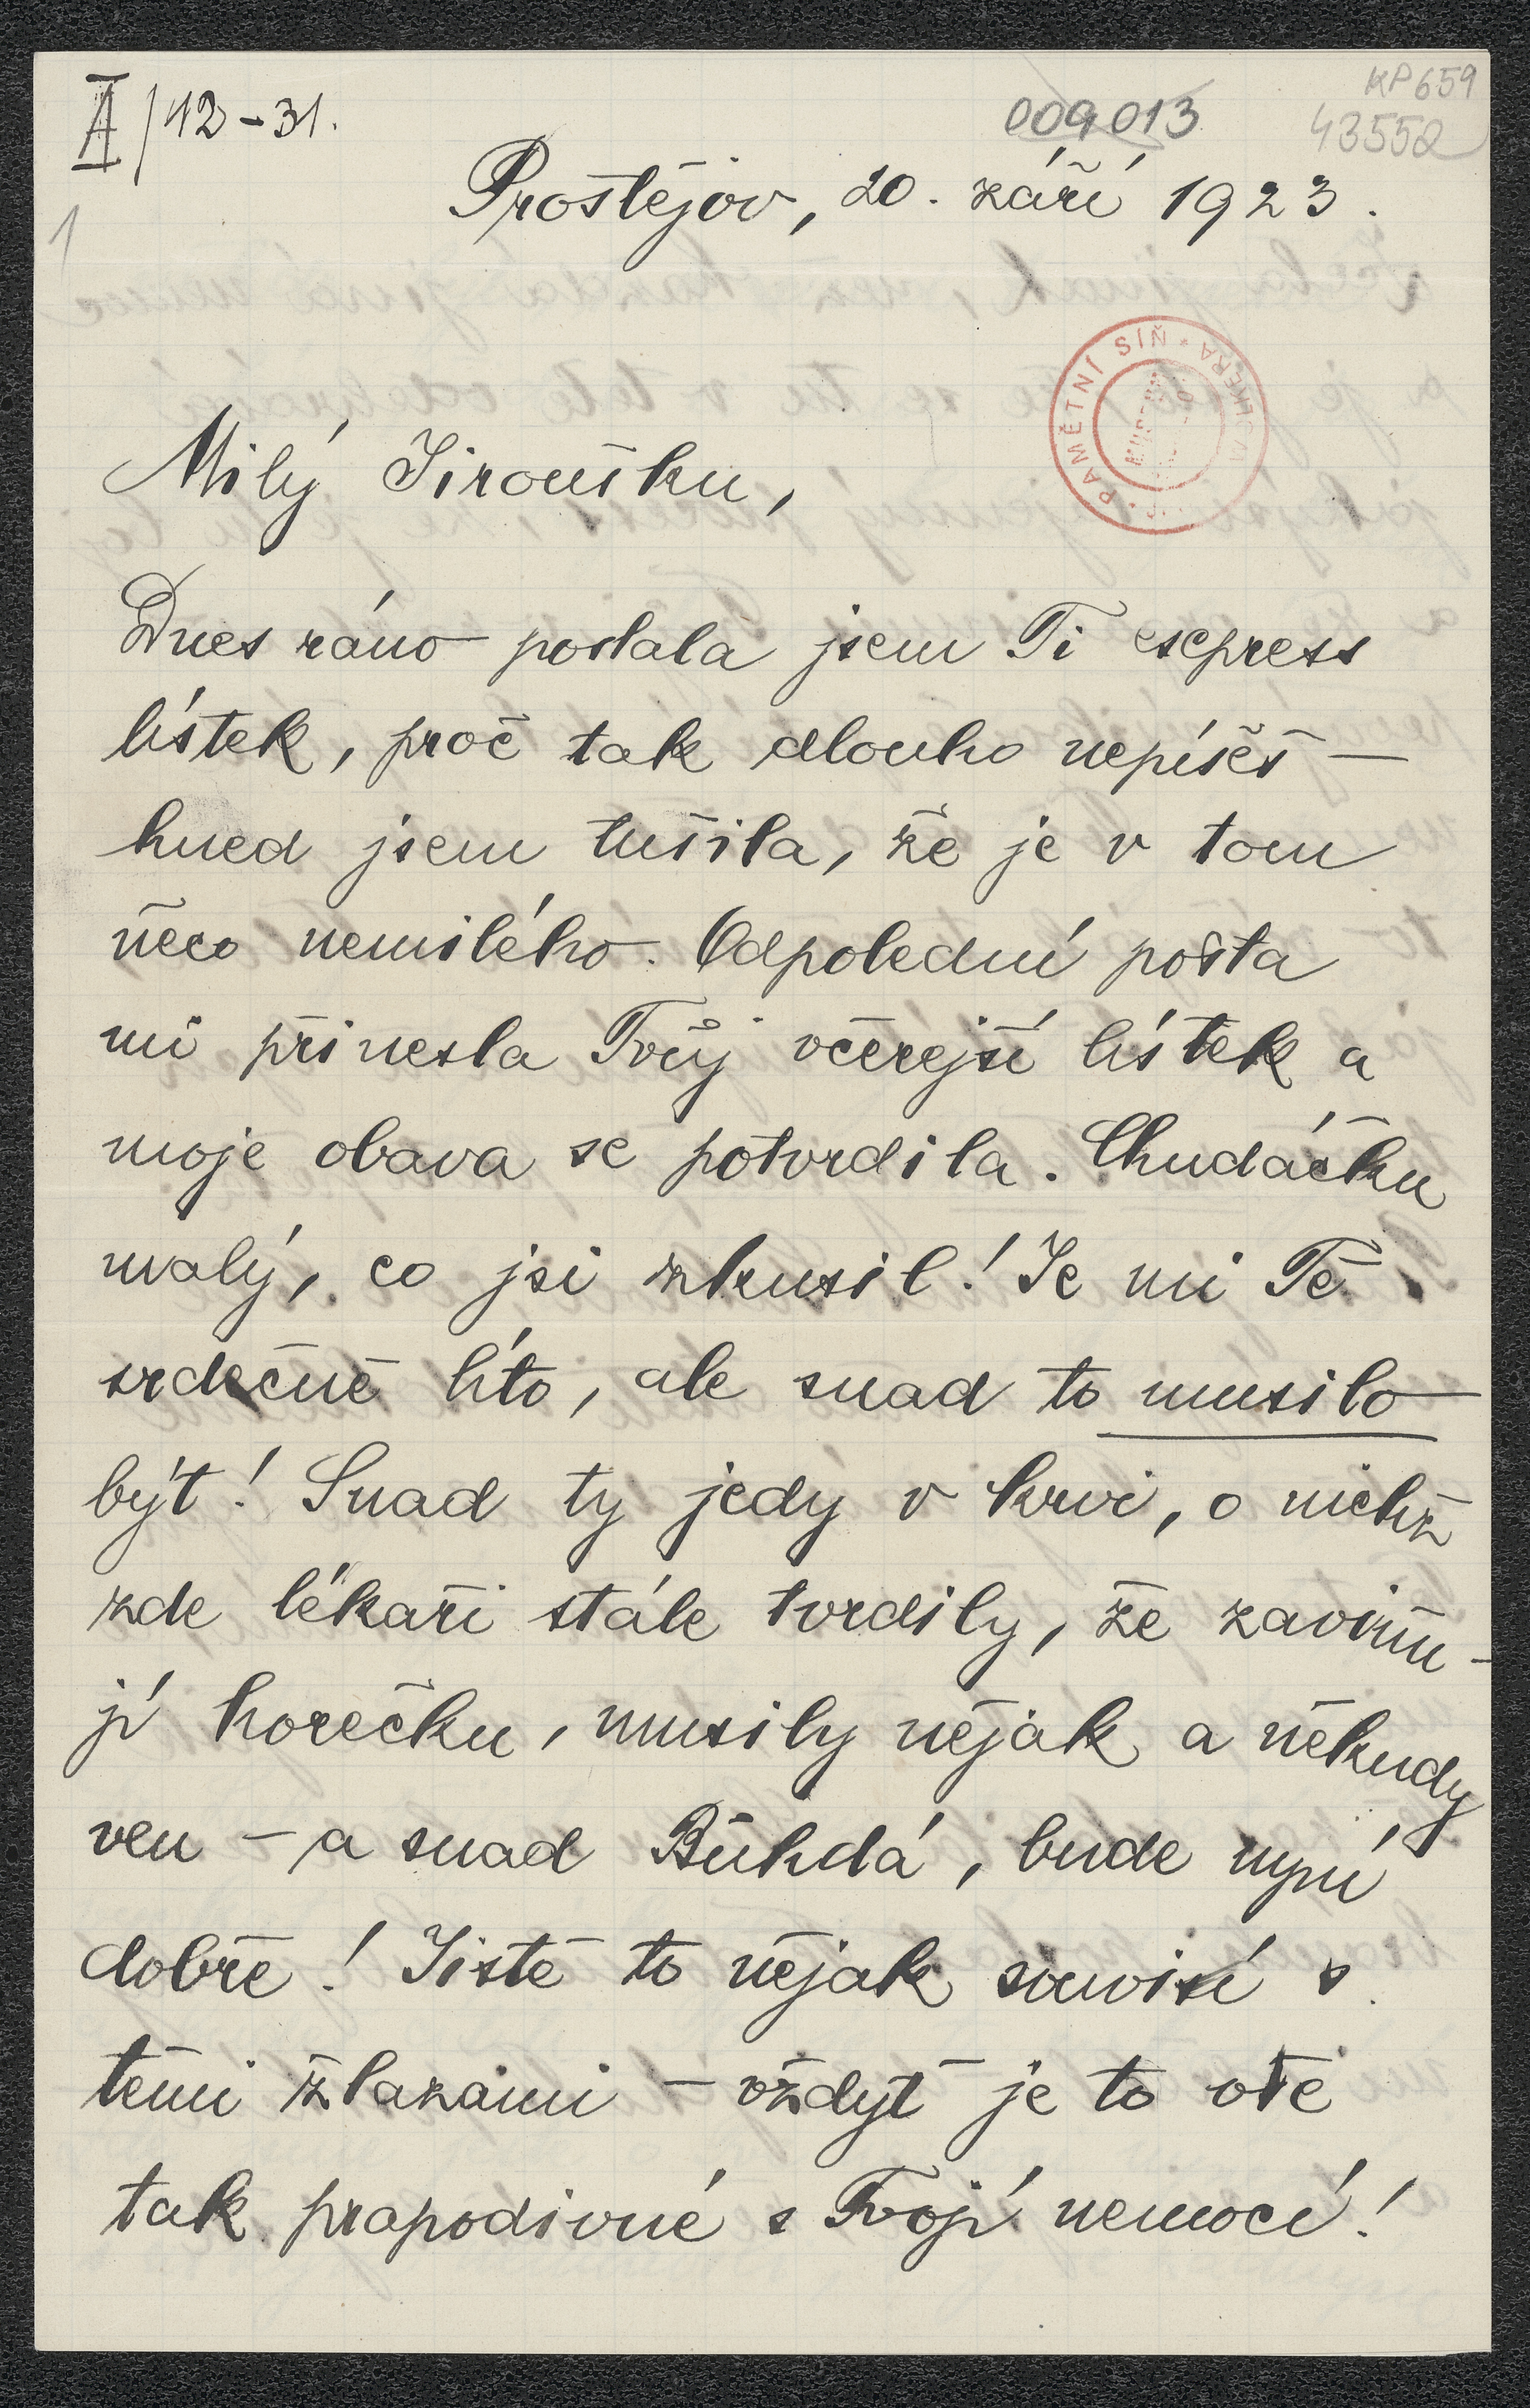 II A/12-31.
009013
KP659
43552
1
Prostějov, 20. září 1923.
PAMĚTNÍ SÍŇ
Milý Jiroušku,
Dnes ráno poslala jsem Ti express
lístek, proč tak dlouho nepíšeš —
hned jsem tušila, že je v tom
něco nemilého. Odpolední pošta
mi přinesla Tvůj včerejší lístek a
moje obava se potvrdila. Chudáčku
malý, co jsi zkusil! Je mi Tě
srdečně líto, ale snad to musilo
být! Snad ty jedy v krvi, o nichž
zde lékaři stále tvrdily, že zaviňu-
jí horečku, musily nějak a někudy
ven – a snad Bůhdá, bude nyní
dobře! Jistě to nějak souvisí s
těmi žlazami – vždyť je to vše
tak prapodivné s Tvojí nemocí!